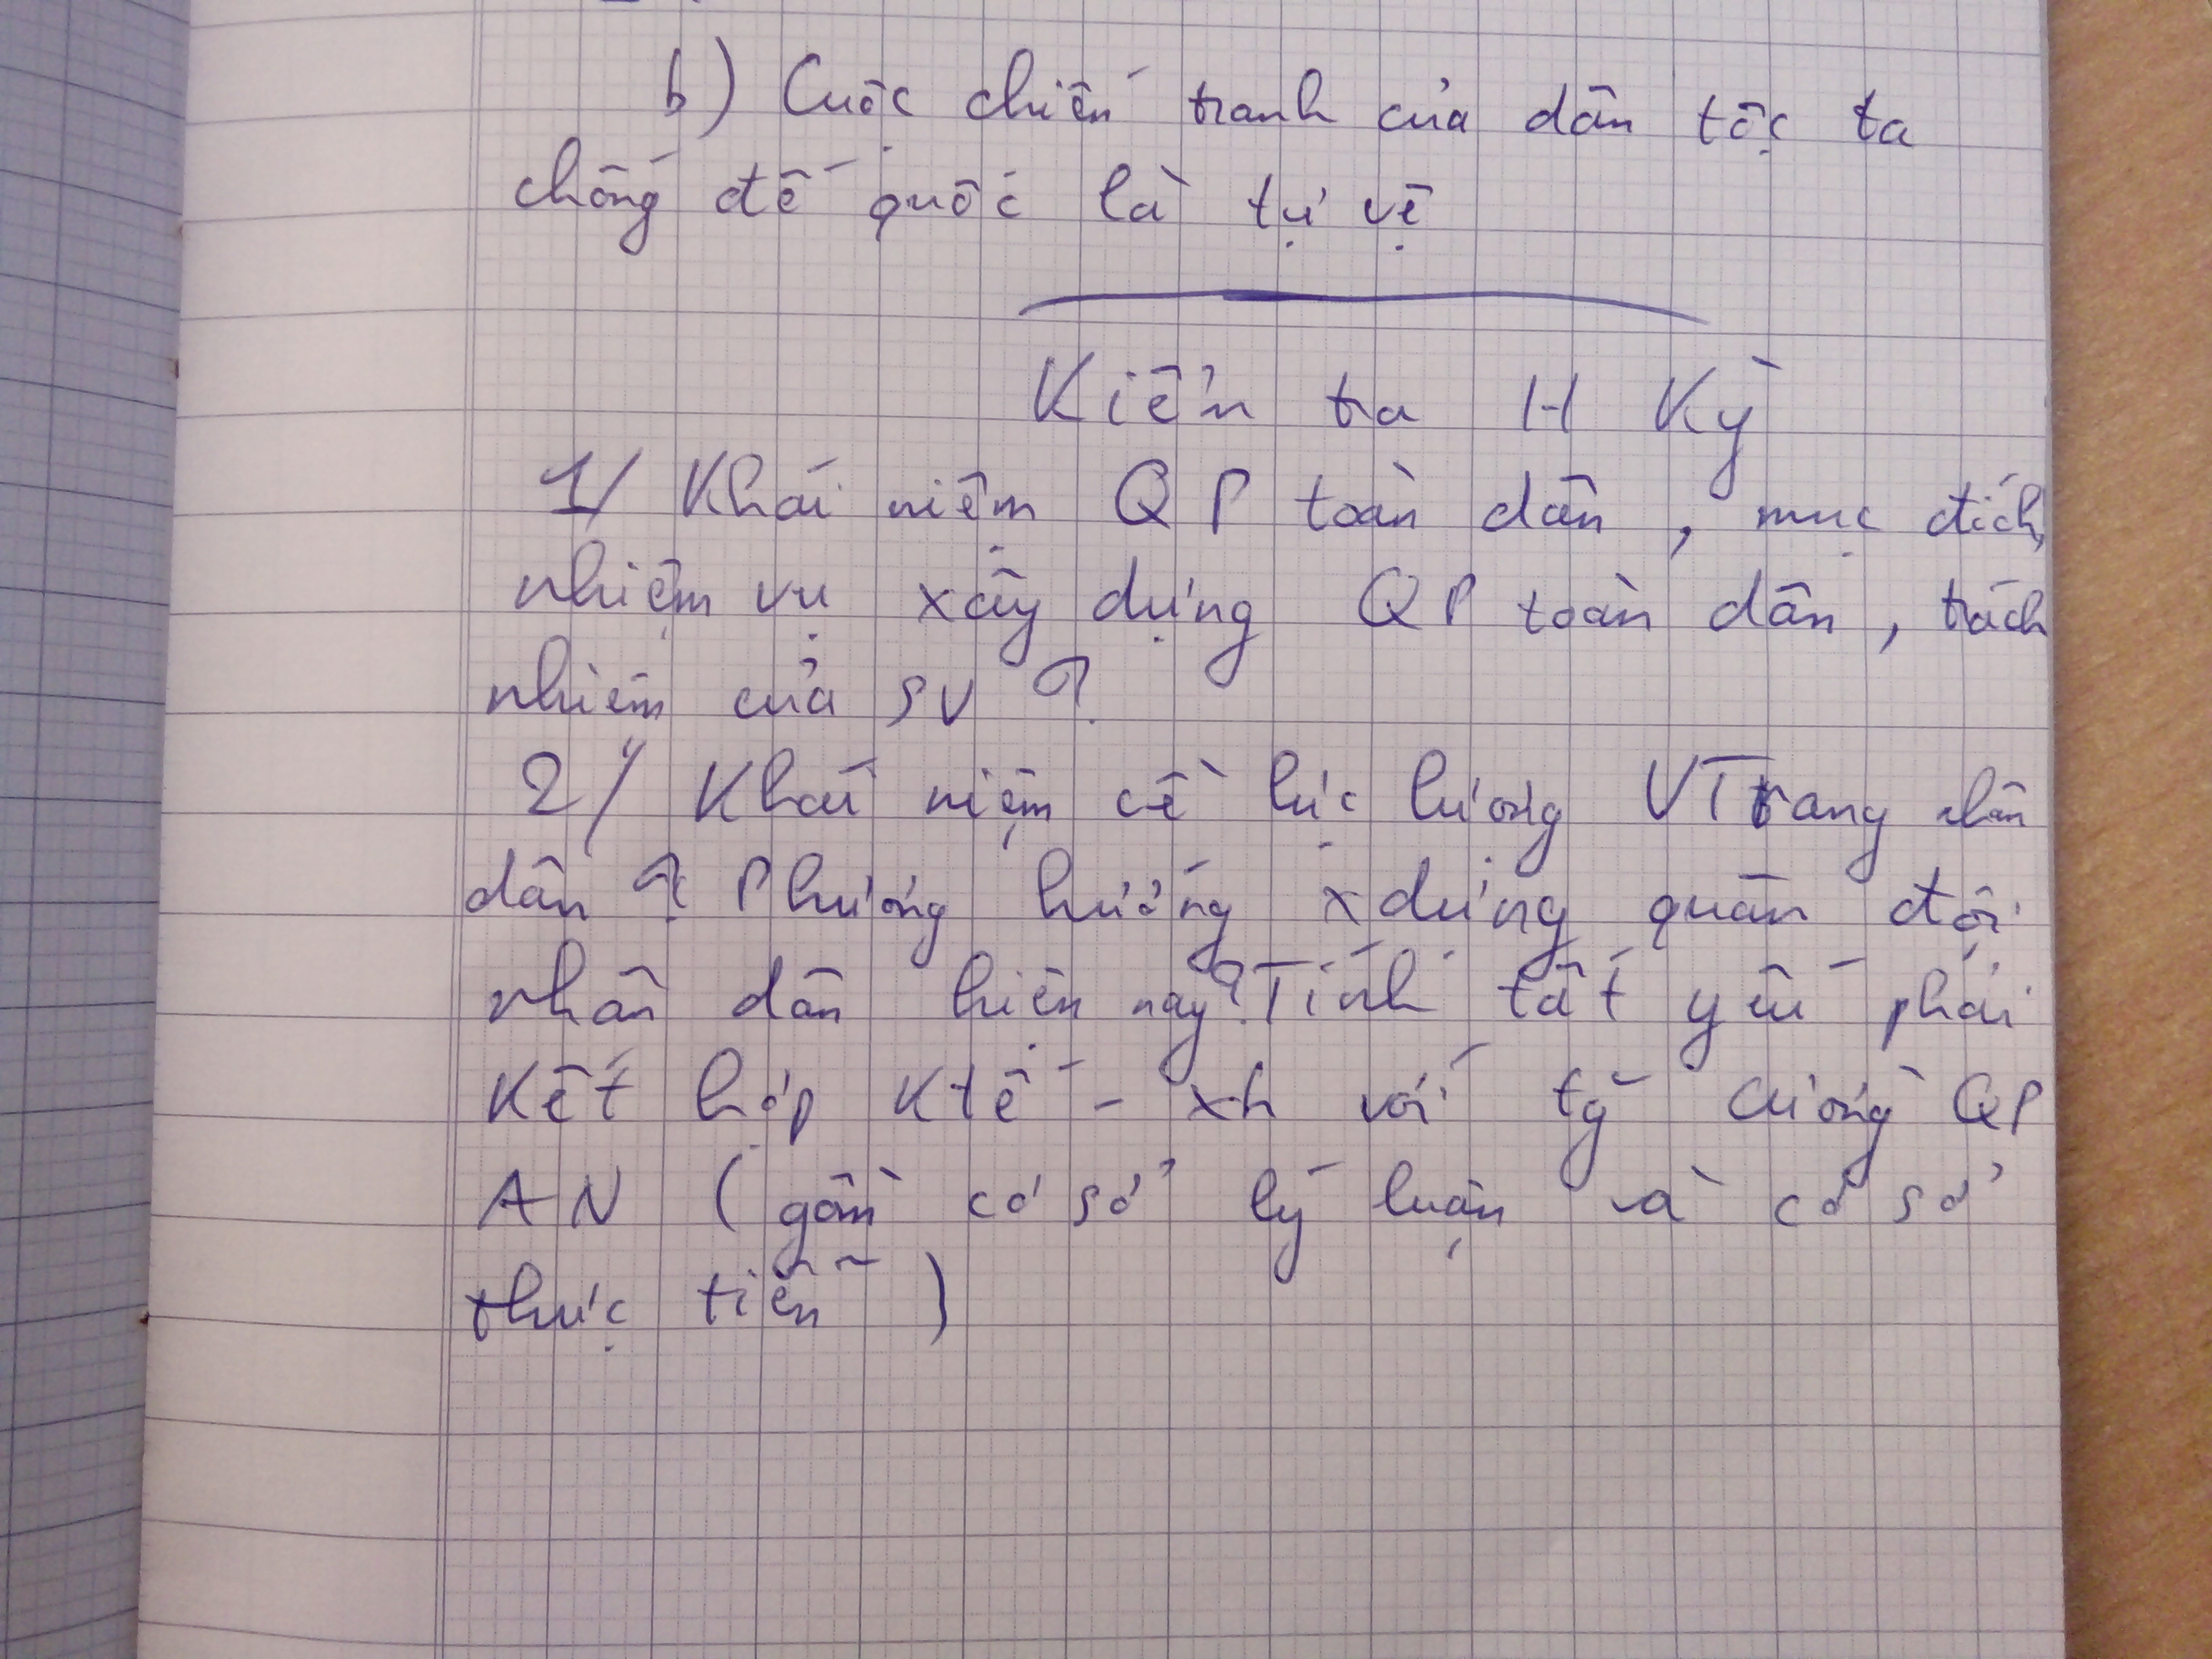 b) Cuộc chiến tranh của dân tộc ta
chống đế quốc là tự vệ
Kiểm tra H Kỳ
1/ Khái niệm QP toàn dân, mục đích,
nhiệm vụ xây dựng QP toàn dân, trách
nhiệm của SV?
2/ Khái niệm về lực lượng VTrang nhân
dân? Phương hướng xdựng quân đội
nhân dân hiện nay? Tính tất yếu phải
kết hợp ktế - xh với tg cường QP
AN (gồm cơ sở lý luận và cơ sở
thực tiễn)